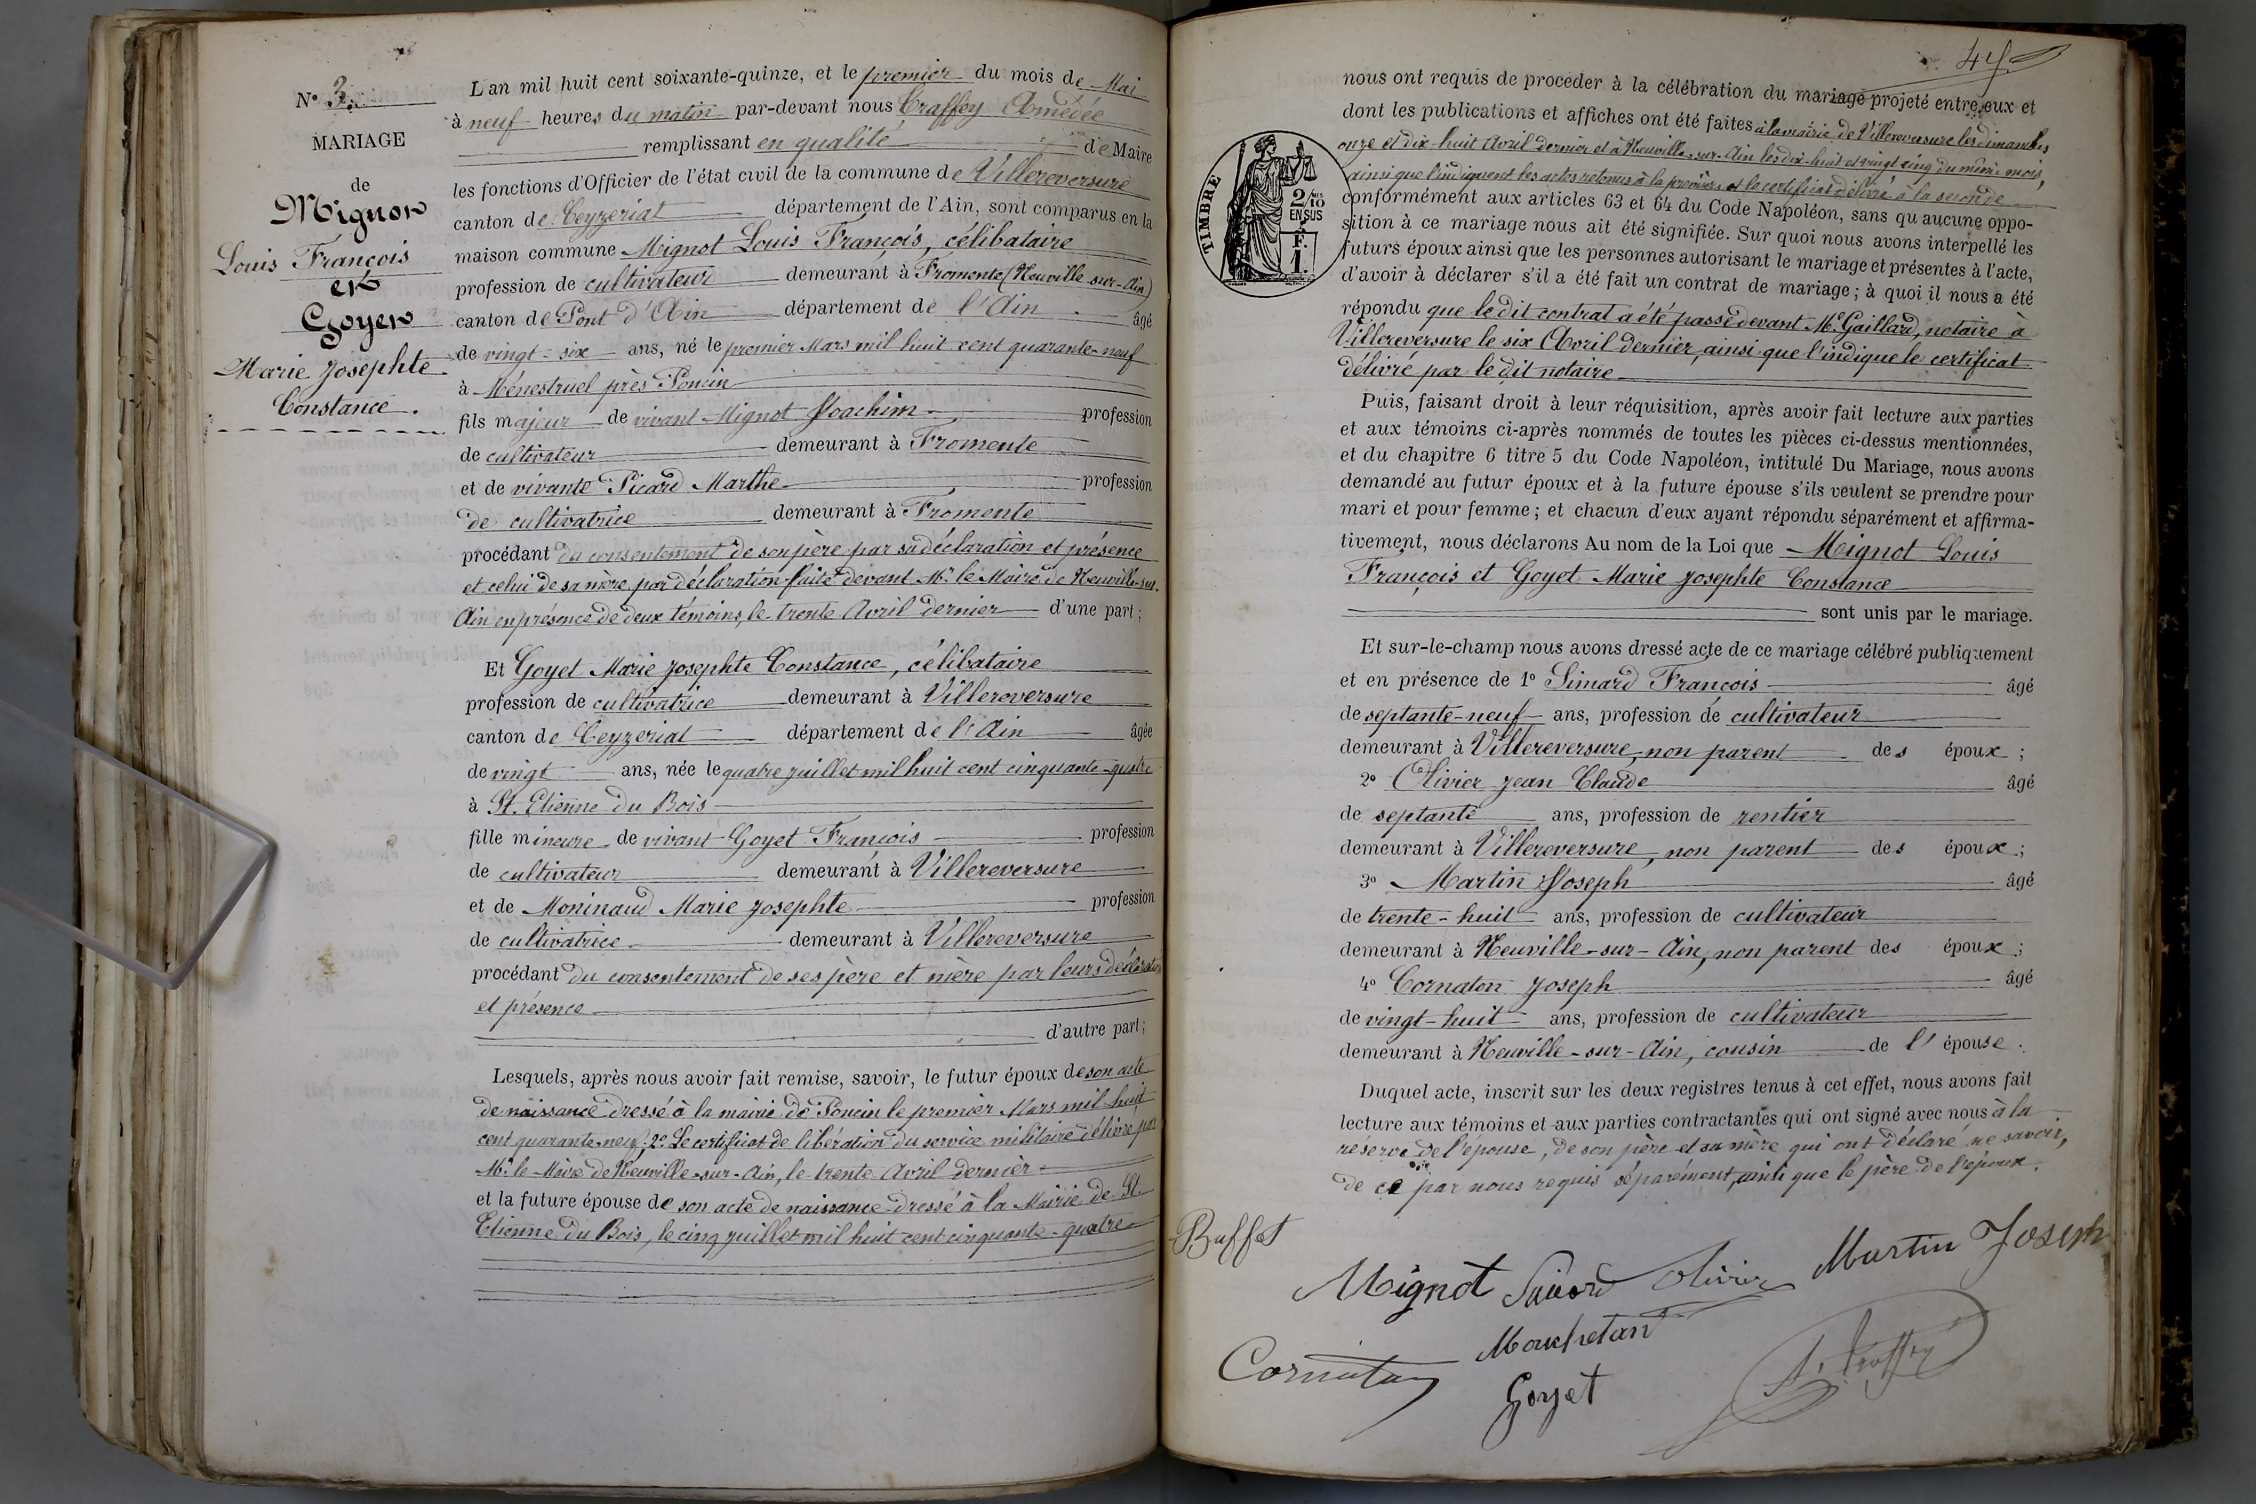 N° 3.
MARIAGE
de
Mignot
Louis François
et
Goyet
Marie Josephte
Constance.
L'an mil huit cent soixante-quinze, et le premier du mois de Mai
à neuf heures du matin par-devant nous Craffey Amédée
remplissant en qualité de Maire
les fonctions d'Officier de l'état civil de la commune de Villereversure
canton de Ceyzeriat département de l'Ain, sont comparus en la
maison commune Mignot Louis François, célibataire
profession de cultivateur demeurant à Fromente (Neuville-sur-Ain)
canton de Pont d'Ain département de l'Ain âgé
de vingt-six ans, né le premier Mars mil huit cent quarante-neuf
à Ménestruel près Poncin
fils majeur de vivant Mignot Joachim profession
de cultivateur demeurant à Fromente
et de vivante Picard Marthe profession
de cultivatrice demeurant à Fromente
procédant du consentement de son père par sa déclaration et présence
et celui de sa mère par déclaration faite devant Mr. le Maire de Neuville-sur-
Ain en présence de deux témoins, le trente Avril dernier d'une part;
Et Goyet Marie Josephte Constance, célibataire
profession de cultivatrice demeurant à Villereversure
canton de Ceyzeriat département de l'Ain âgée
de vingt ans, née le quatre juillet mil huit cent cinquante-quatre
à St. Etienne du Bois
fille mineure de vivant Goyet François profession
de cultivateur demeurant à Villereversure
et de Moninaud Marie Josephte profession
de cultivatrice demeurant à Villereversure
procédant du consentement de ses père et mère par leurs déclaration
et présence
d'autre part;
Lesquels, après nous avoir fait remise, savoir, le futur époux de son acte
de naissance dressé à la mairie de Poncin le premier Mars mil huit
cent quarante-neuf; 2° Le certificat de libération du service militaire délivré par
Mr. le Maire de Neuville-sur-Ain, le trente Avril dernier
et la future épouse de son acte de naissance dressé à la Mairie de St.
Etienne du Bois, le cinq juillet mil huit cent cinquante-quatre
nous ont requis de procéder à la célébration du mariage projeté entre eux et
dont les publications et affiches ont été faites à la mairie de Villereversure les dimanches
onze et dix-huit Avril dernier et à Neuville-sur-Ain les dix-huit et vingt cinq du même mois,
ainsi que l'indiquent les actes retenus à la première et le certificat délivré à la seconde
TIMBRE
2/10 EN SUS
F. 1.
conformément aux articles 63 et 64 du Code Napoléon, sans qu'aucune oppo-
sition à ce mariage nous ait été signifiée. Sur quoi nous avons interpellé les
futurs époux ainsi que les personnes autorisant le mariage et présentes à l'acte,
d'avoir à déclarer s'il a été fait un contrat de mariage; à quoi il nous a été
répondu que le dit contrat a été passé devant Me. Gaillard, notaire à
Villereversure le six Avril dernier, ainsi que l'indique le certificat
délivré par le dit notaire
Puis, faisant droit à leur réquisition, après avoir fait lecture aux parties
et aux témoins ci-après nommés de toutes les pièces ci-dessus mentionnées,
et du chapitre 6 titre 5 du Code Napoléon, intitulé Du Mariage, nous avons
demandé au futur époux et à la future épouse s'ils veulent se prendre pour
mari et pour femme; et chacun d'eux ayant répondu séparément et affirma-
tivement, nous déclarons Au nom de la Loi que Mignot Louis
François et Goyet Marie Josephte Constance
sont unis par le mariage.
Et sur-le-champ nous avons dressé acte de ce mariage célébré publiquement
et en présence de 1° Simard François âgé
de septante-neuf ans, profession de cultivateur
demeurant à Villereversure, non parent des époux;
2° Olivier Jean Claude âgé
de septante ans, profession de rentier
demeurant à Villereversure, non parent des époux;
3° Martin Joseph âgé
de trente-huit ans, profession de cultivateur
demeurant à Neuville-sur-Ain, non parent des époux;
4° Cornaton Joseph âgé
de vingt-huit ans, profession de cultivateur
demeurant à Neuville-sur-Ain, cousin de l'épouse.
Duquel acte, inscrit sur les deux registres tenus à cet effet, nous avons fait
lecture aux témoins et aux parties contractantes qui ont signé avec nous à la
réserve de l'épouse, de son père et sa mère qui ont déclaré ne savoir,
de ce par nous requis séparément, ainsi que le père de l'époux.
Buffet
Mignot Simard Olivier Martin Joseph
Mouchetan
Cornaton
Goyet